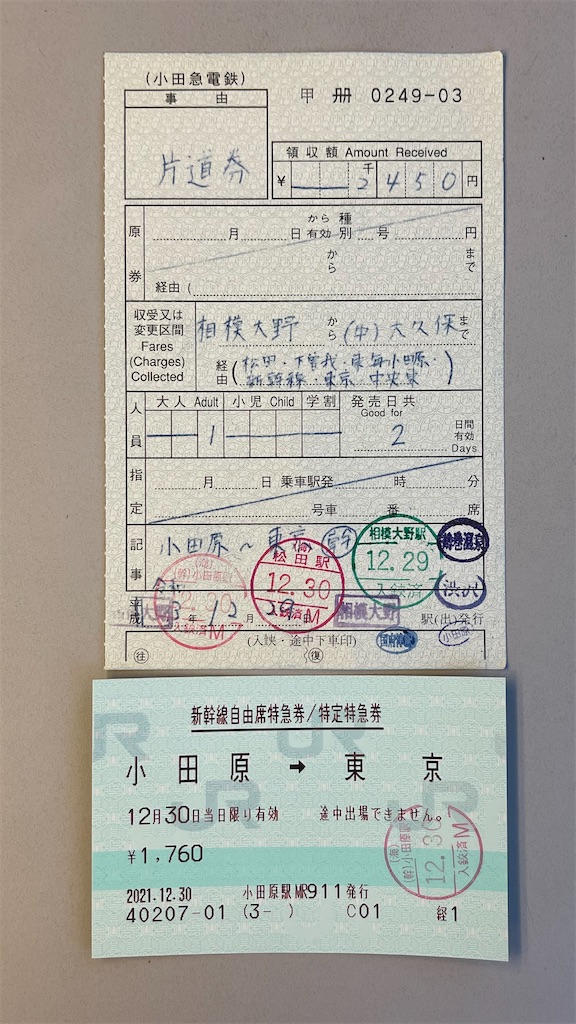 (小田急電鉄)
事由
甲 冊 0249-03
片道券
領収額 Amount Received
¥ 千 2 4 5 0 円
原券
から 種
月 日 有効 別 号 円
から まで
経由 (
収受又は
変更区間
Fares
(Charges)
Collected
相模大野 から (中)大久保 まで
経由 (松田・下曽我・東海小田原・
新幹線・東京 中央東)
人員
大人 Adult 小児 Child 学割
1
発売日共
Good for
2
日間
有効
Days
指定
月 日 乗車駅発 時 分
号車 番 席
記事
小田原~東京 幹
相模大野駅
12.29
入鋏済
鶴巻温泉
松田駅
12.30
入鋏済M
(幹)小田原駅
12.30
入鋏済M7
渋沢
令和
平成 3年 12月 29日
相模大野
駅(出)発行
小田原
(入鋏・途中下車印)
国府津
往 復
新幹線自由席特急券/特定特急券
小田原 → 東京
12月30日当日限り有効 途中出場できません。
¥1,760
(幹)小田原駅
12.30
入鋏済M7
2021.12.30 小田原駅MR911発行
40207-01 (3- ) C01 経1